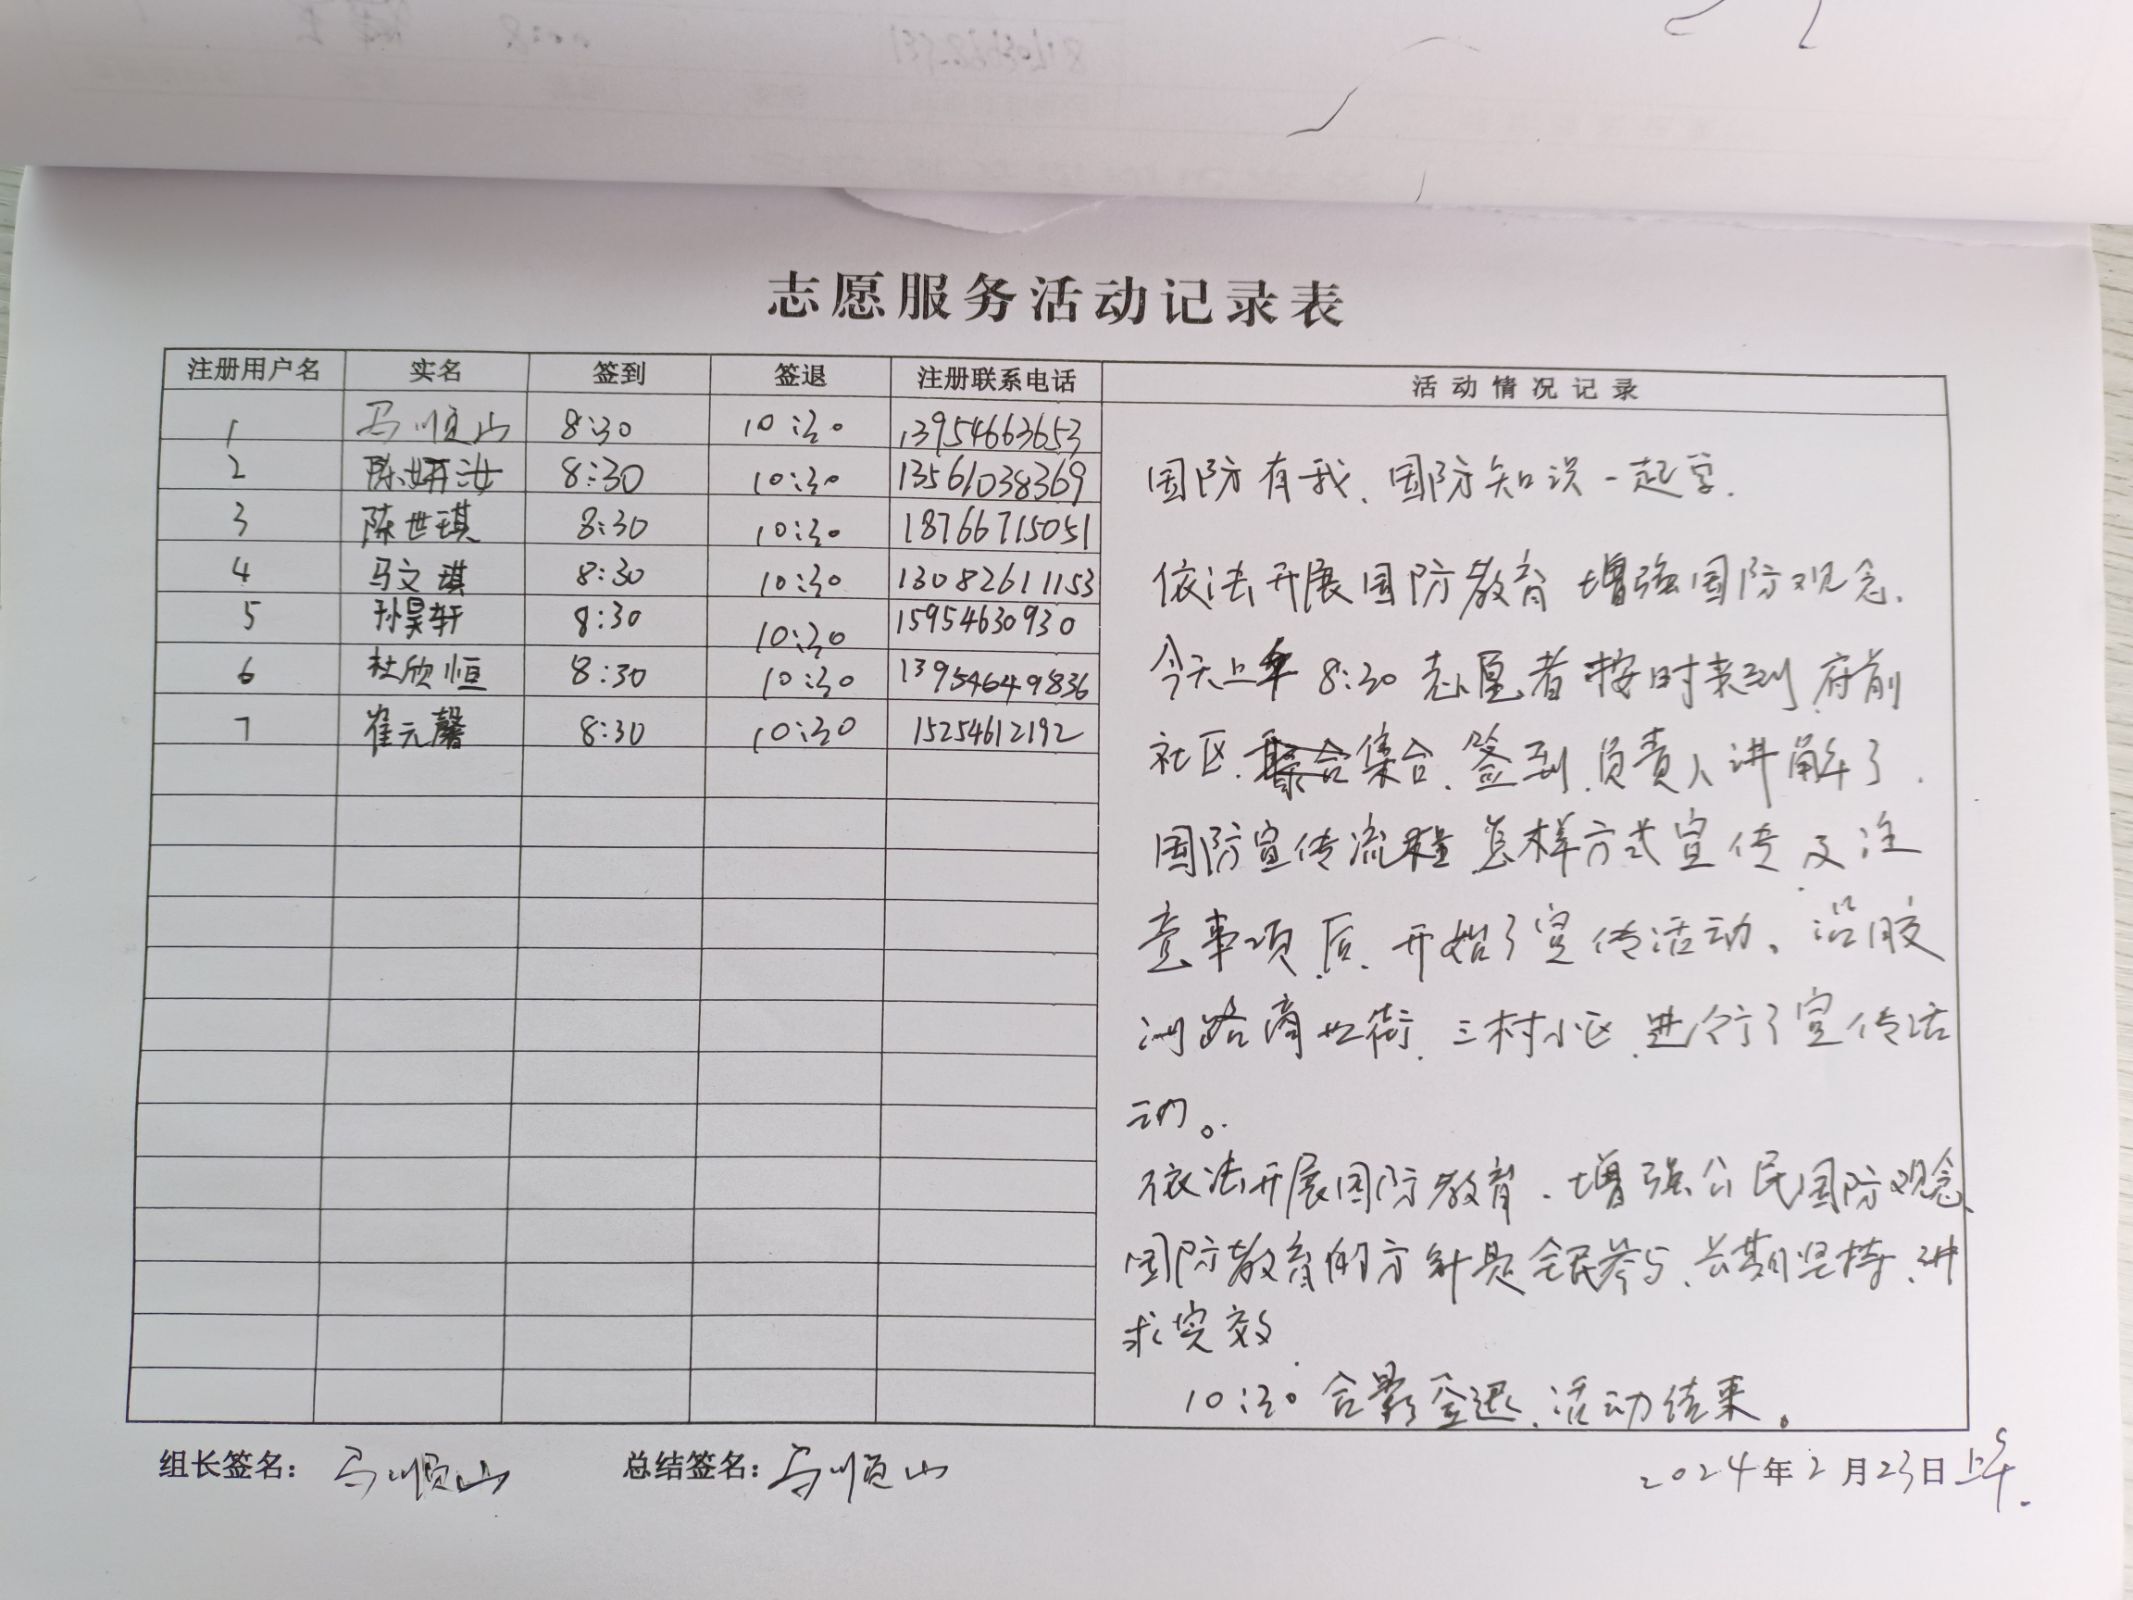 志愿服务活动记录表
注册用户名 实名 签到 签退 注册联系电话 活动情况记录
1 马顺山 8:30 10:30 13954663653
2 陈妍汝 8:30 10:30 13561038369
3 陈世琪 8:30 10:30 18766715051
4 马文琪 8:30 10:30 13082611153
5 孙昊轩 8:30 10:30 15954630930
6 杜欣恒 8:30 10:30 13954649836
7 崔元馨 8:30 10:30 15254612192
国防有我、国防知识一起学.
依法开展国防教育 增强国防观念.
今天上午 8:30 志愿者按时来到府前
社区.集合.签到.负责人讲解了.
国防宣传流程 怎样方式宣传及注
意事项后.开始了宣传活动。沿胶
州路商业街.三村小区.进行了宣传活
动。
依法开展国防教育.增强公民国防观念、
国防教育的方针是全民参与、长期坚持、讲
求实效.
10:30 合影签退.活动结束。
组长签名: 马顺山 总结签名: 马顺山 2024年2月23日上午.